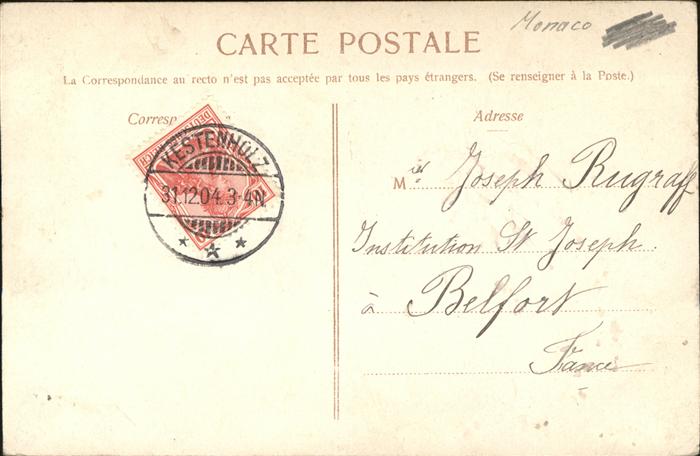 Monaco
CARTE POSTALE
La Correspondance au recto n'est pas acceptée par tous les pays étrangers. (Se renseigner à la Poste.)
Adresse
KESTENHOLZ
31.12.04.3-4N
Joseph Rugraff
Institution St Joseph.
à Belfort
France